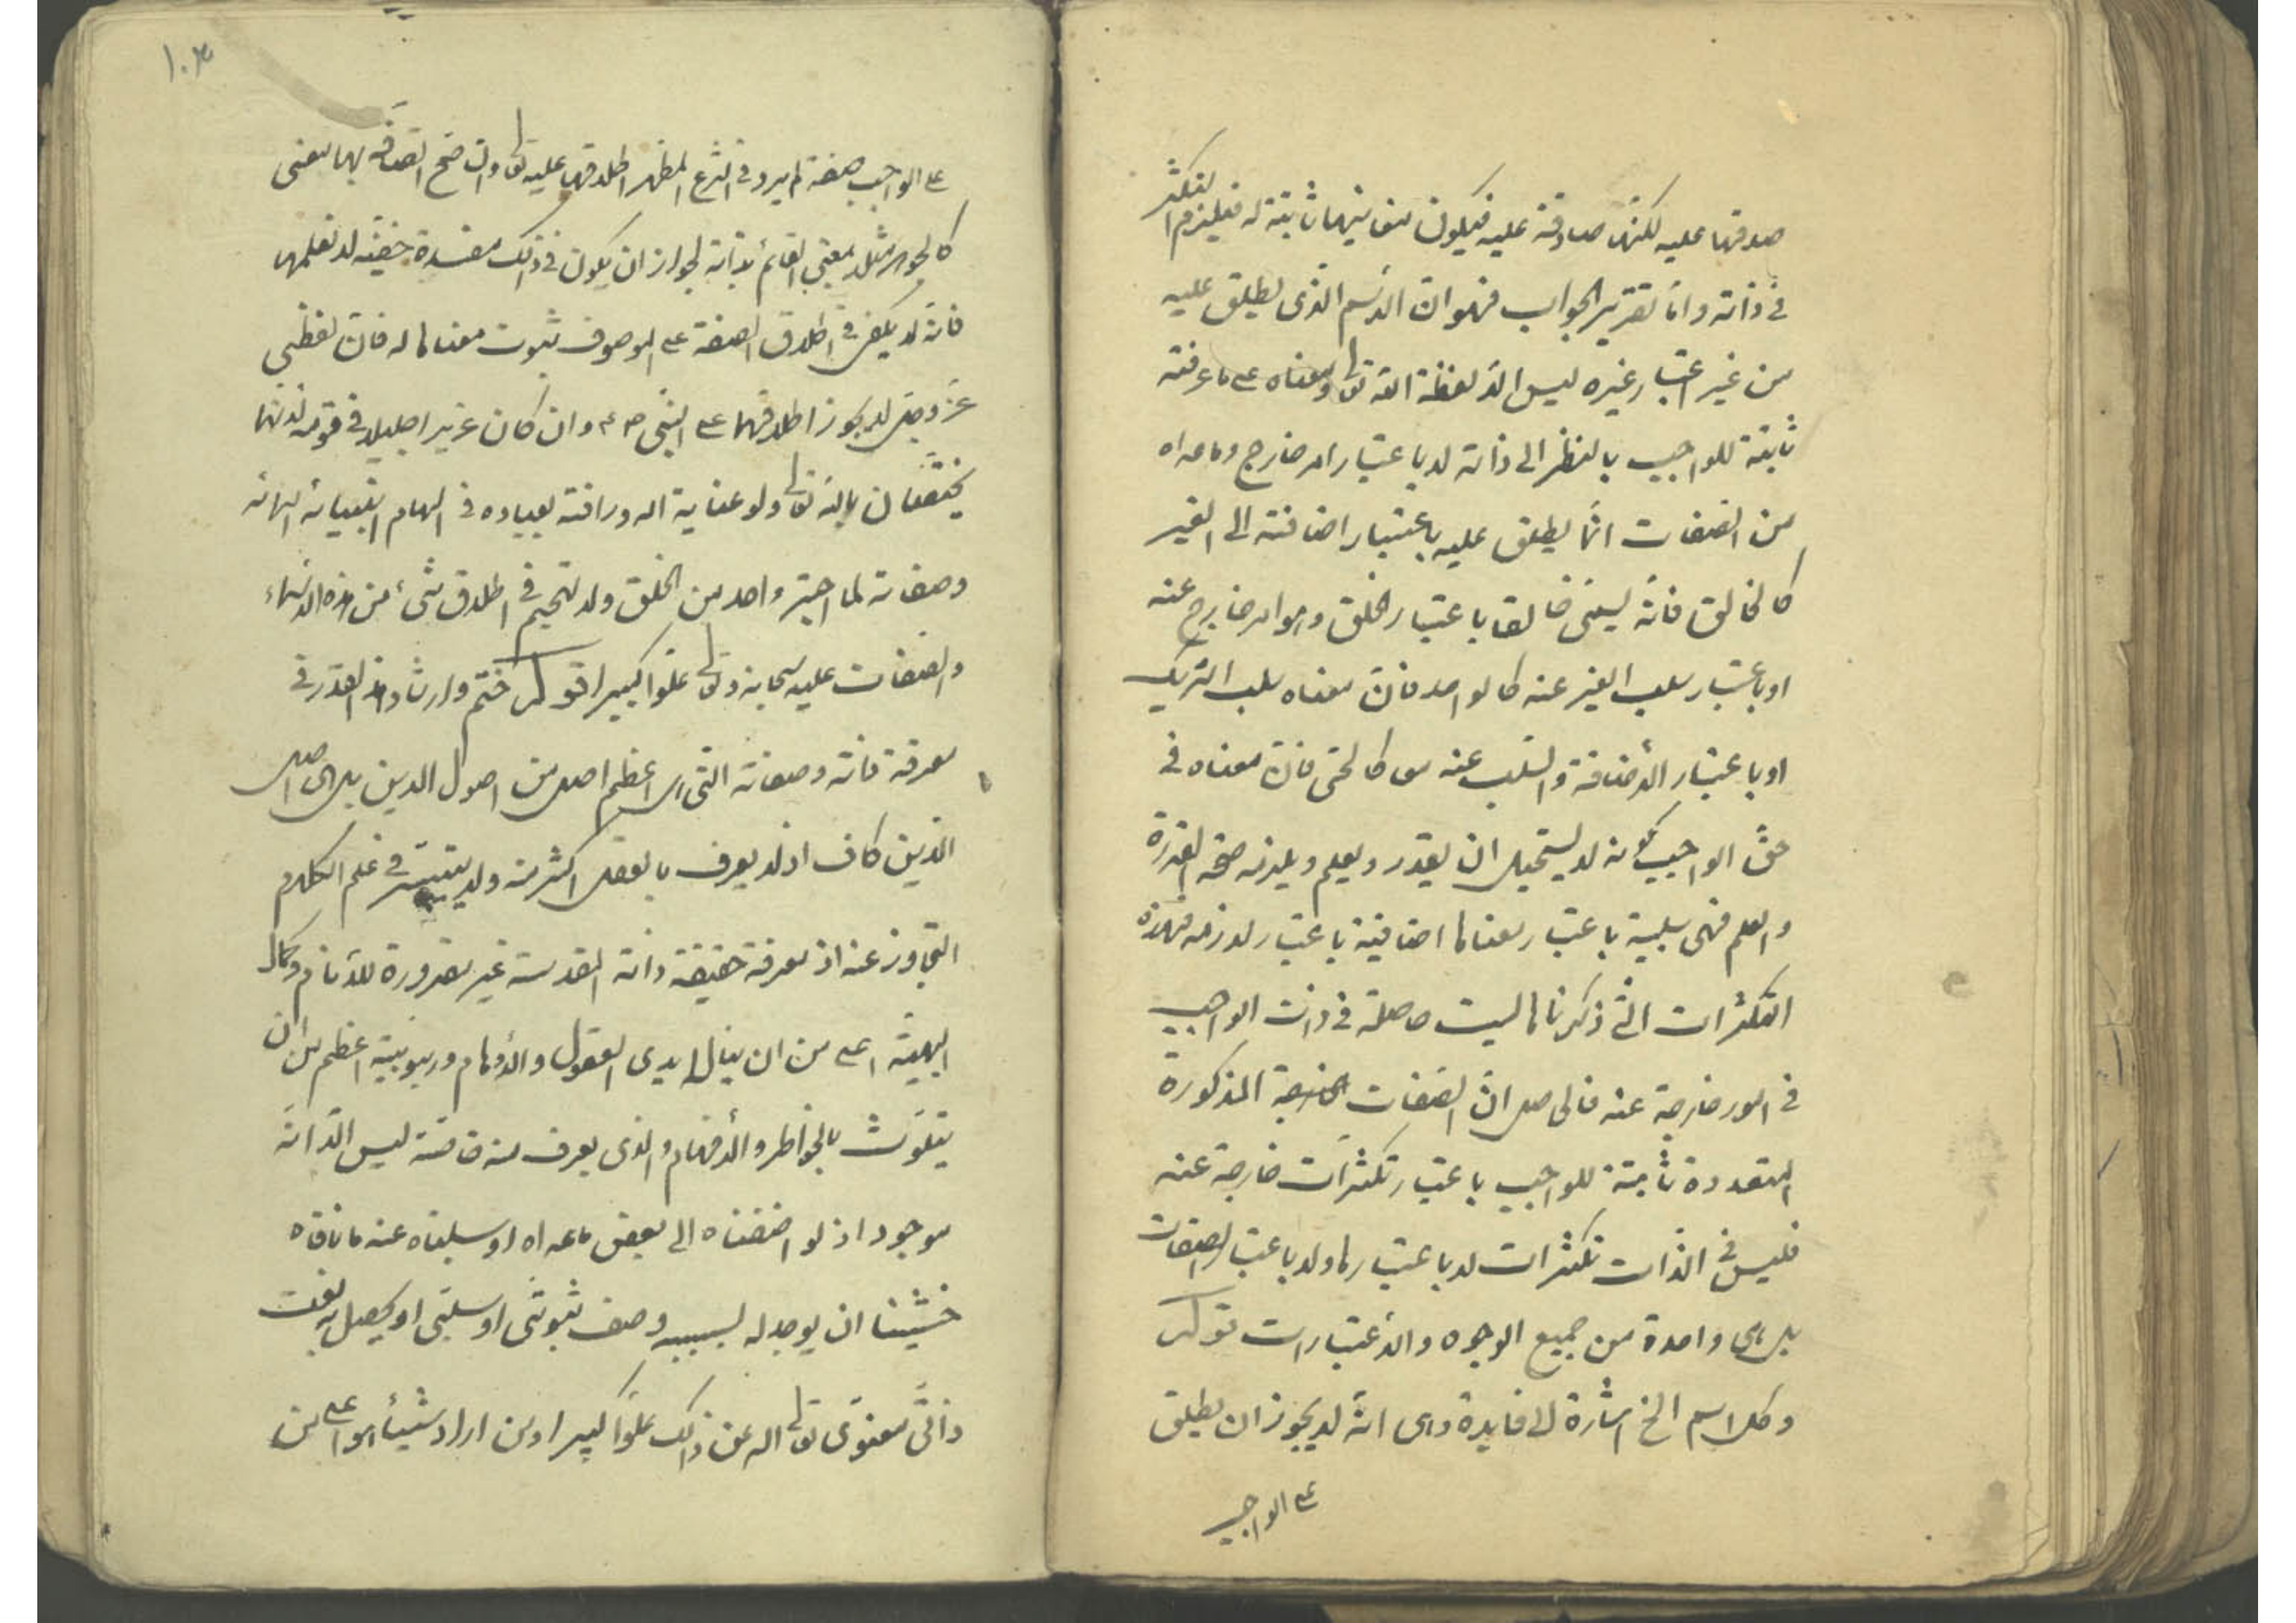 صدقها عليه لكنها صادقة عليه فيكون معانيها ثابتة له فيلزم التكثر
في ذاته واما تقرير الجواب فهو ان الاسم الذي يطلق عليه
من غير اعتبار غيره ليس الا لفظة الله تعالى ومعناه على ما عرفته
ثابتة للواجب بالنظر الى ذاته لا باعتبار امر خارج وما عداه
من الصفات انما يطلق عليه باعتبار اضافته الى الغير
كالخالق فانه يسمى خالقا باعتبار الخلق وهو امر خارج عنه
او باعتبار سلب الغير عنه كالواحد فان معناه سلب الشريك
او باعتبار الأضافة والسلب عنه معا كالحى فان معناه في
حق الواجب كونه لا يستحيل ان يقدر ويعلم ويلزمه صحة القدرة
والعلم فهى سلبية باعتبار معناها اضافية باعتبار لازمه فهذه
التكثرات التي ذكرناها ليست حاصلة في ذات الواجب
في امور خارجة عنه فالحاصل ان الصفات المذكورة
المتعددة ثابتة للواجب باعتبار تكثرات خارجة عنه
فليس في الذات تكثرات لا باعتبارها ولا باعتبار الصفات
بل هى واحدة من جميع الوجوه والأعتبارات قوله
وكل اسم الخ اشارة الى فايدة وهى انه لا يجوز ان يطلق
على الواجب
١٠٣
على الواجب صفة لم يرد في الشرع المطهر اطلاقها عليه تعالى وان صح اتصافه بها بمعنى
كالجوهر مثلا بمعنى القائم بذاته لجواز ان يكون في ذلك مفسدة خفية لا نعلمها
فانه لا يكفى في اطلاق الصفة على الموصوف ثبوت معناها له فان لفظتي
عز وجل لا يجوز اطلاقهما على النبي ص م وان كان عزيزا جليلا في قومه لأنهما
يختصان بالله تعالى ولو عناية الله ورأفته بعباده في الهام انبيائه اسمائه
وصفاته لما اجتر واحد من الخلق ولا تهجم في اطلاق شئ من هذه الاسماء
والصفات عليه سبحانه وتعالى علوا كبيرا قوله ختم وارشاد هذا القدر في
معرفة ذاته وصفاته التي هى اعظم اصل من اصول الدين بل هى اصل
الدين كاف اذ لا يعرف بالعقل اكثر منه ولا يتيسر في علم الكلام
التجاوز عنه اذ معرفة حقيقة ذاته المقدسة غير مقدورة للأنام وكمال
الهيته اعلى من ان ينال ايدى العقول والأوهام وربوبيته اعظم من ان
يتلوث بالخواطر والأفهام والذي يعرف منه خاصته ليس الا انه
موجود اذ لو اضفناه الى بعض ما عداه او سلبناه عنه ما نافاه
خشينا ان يوجد له بسببه وصف ثبوتي او سلبي او يحصل به نعت
ذاتي معنوى تعالى الله عن ذلك علوا كبيرا ومن اراد شيئا هو اعلى من